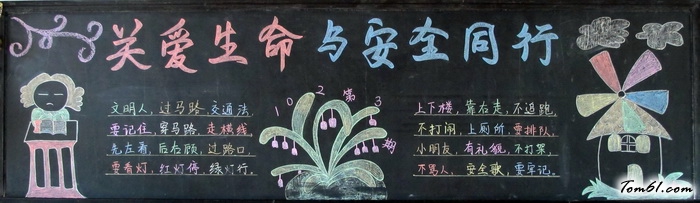 关爱生命与安全同行
102第3期
文明人，过马路，交通法，
要记住，穿马路，走横线，
先左看，后右顾，过路口，
要看灯，红灯停，绿灯行。
上下楼，靠右走，不追跑，
不打闹，上厕所，要排队，
小朋友，有礼貌，不打架，
不骂人，安全歌，要牢记。
Tom61.com